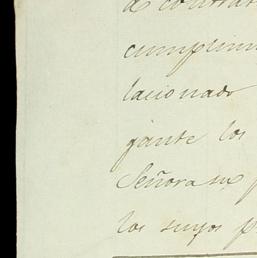 a contrat
cumplimi
lacionado
gante los
Señora su p
los suyos p